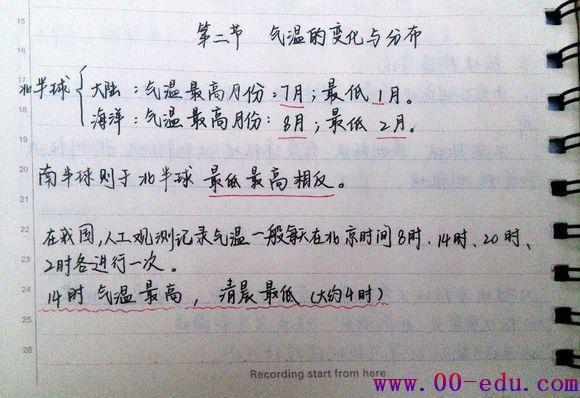 第二节 气温的变化与分布
北半球{大陆:气温最高月份:7月;最低1月。
海洋:气温最高月份:8月;最低2月。
南半球则于北半球最低最高相反。
在我国,人工观测记录气温一般每天在北京时间8时、14时、20时、
2时各进行一次。
14时气温最高,清晨最低(大约4时)
15
16
17
18
19
20
21
22
23
24
25
26
Recording start from here
www.00-edu.com